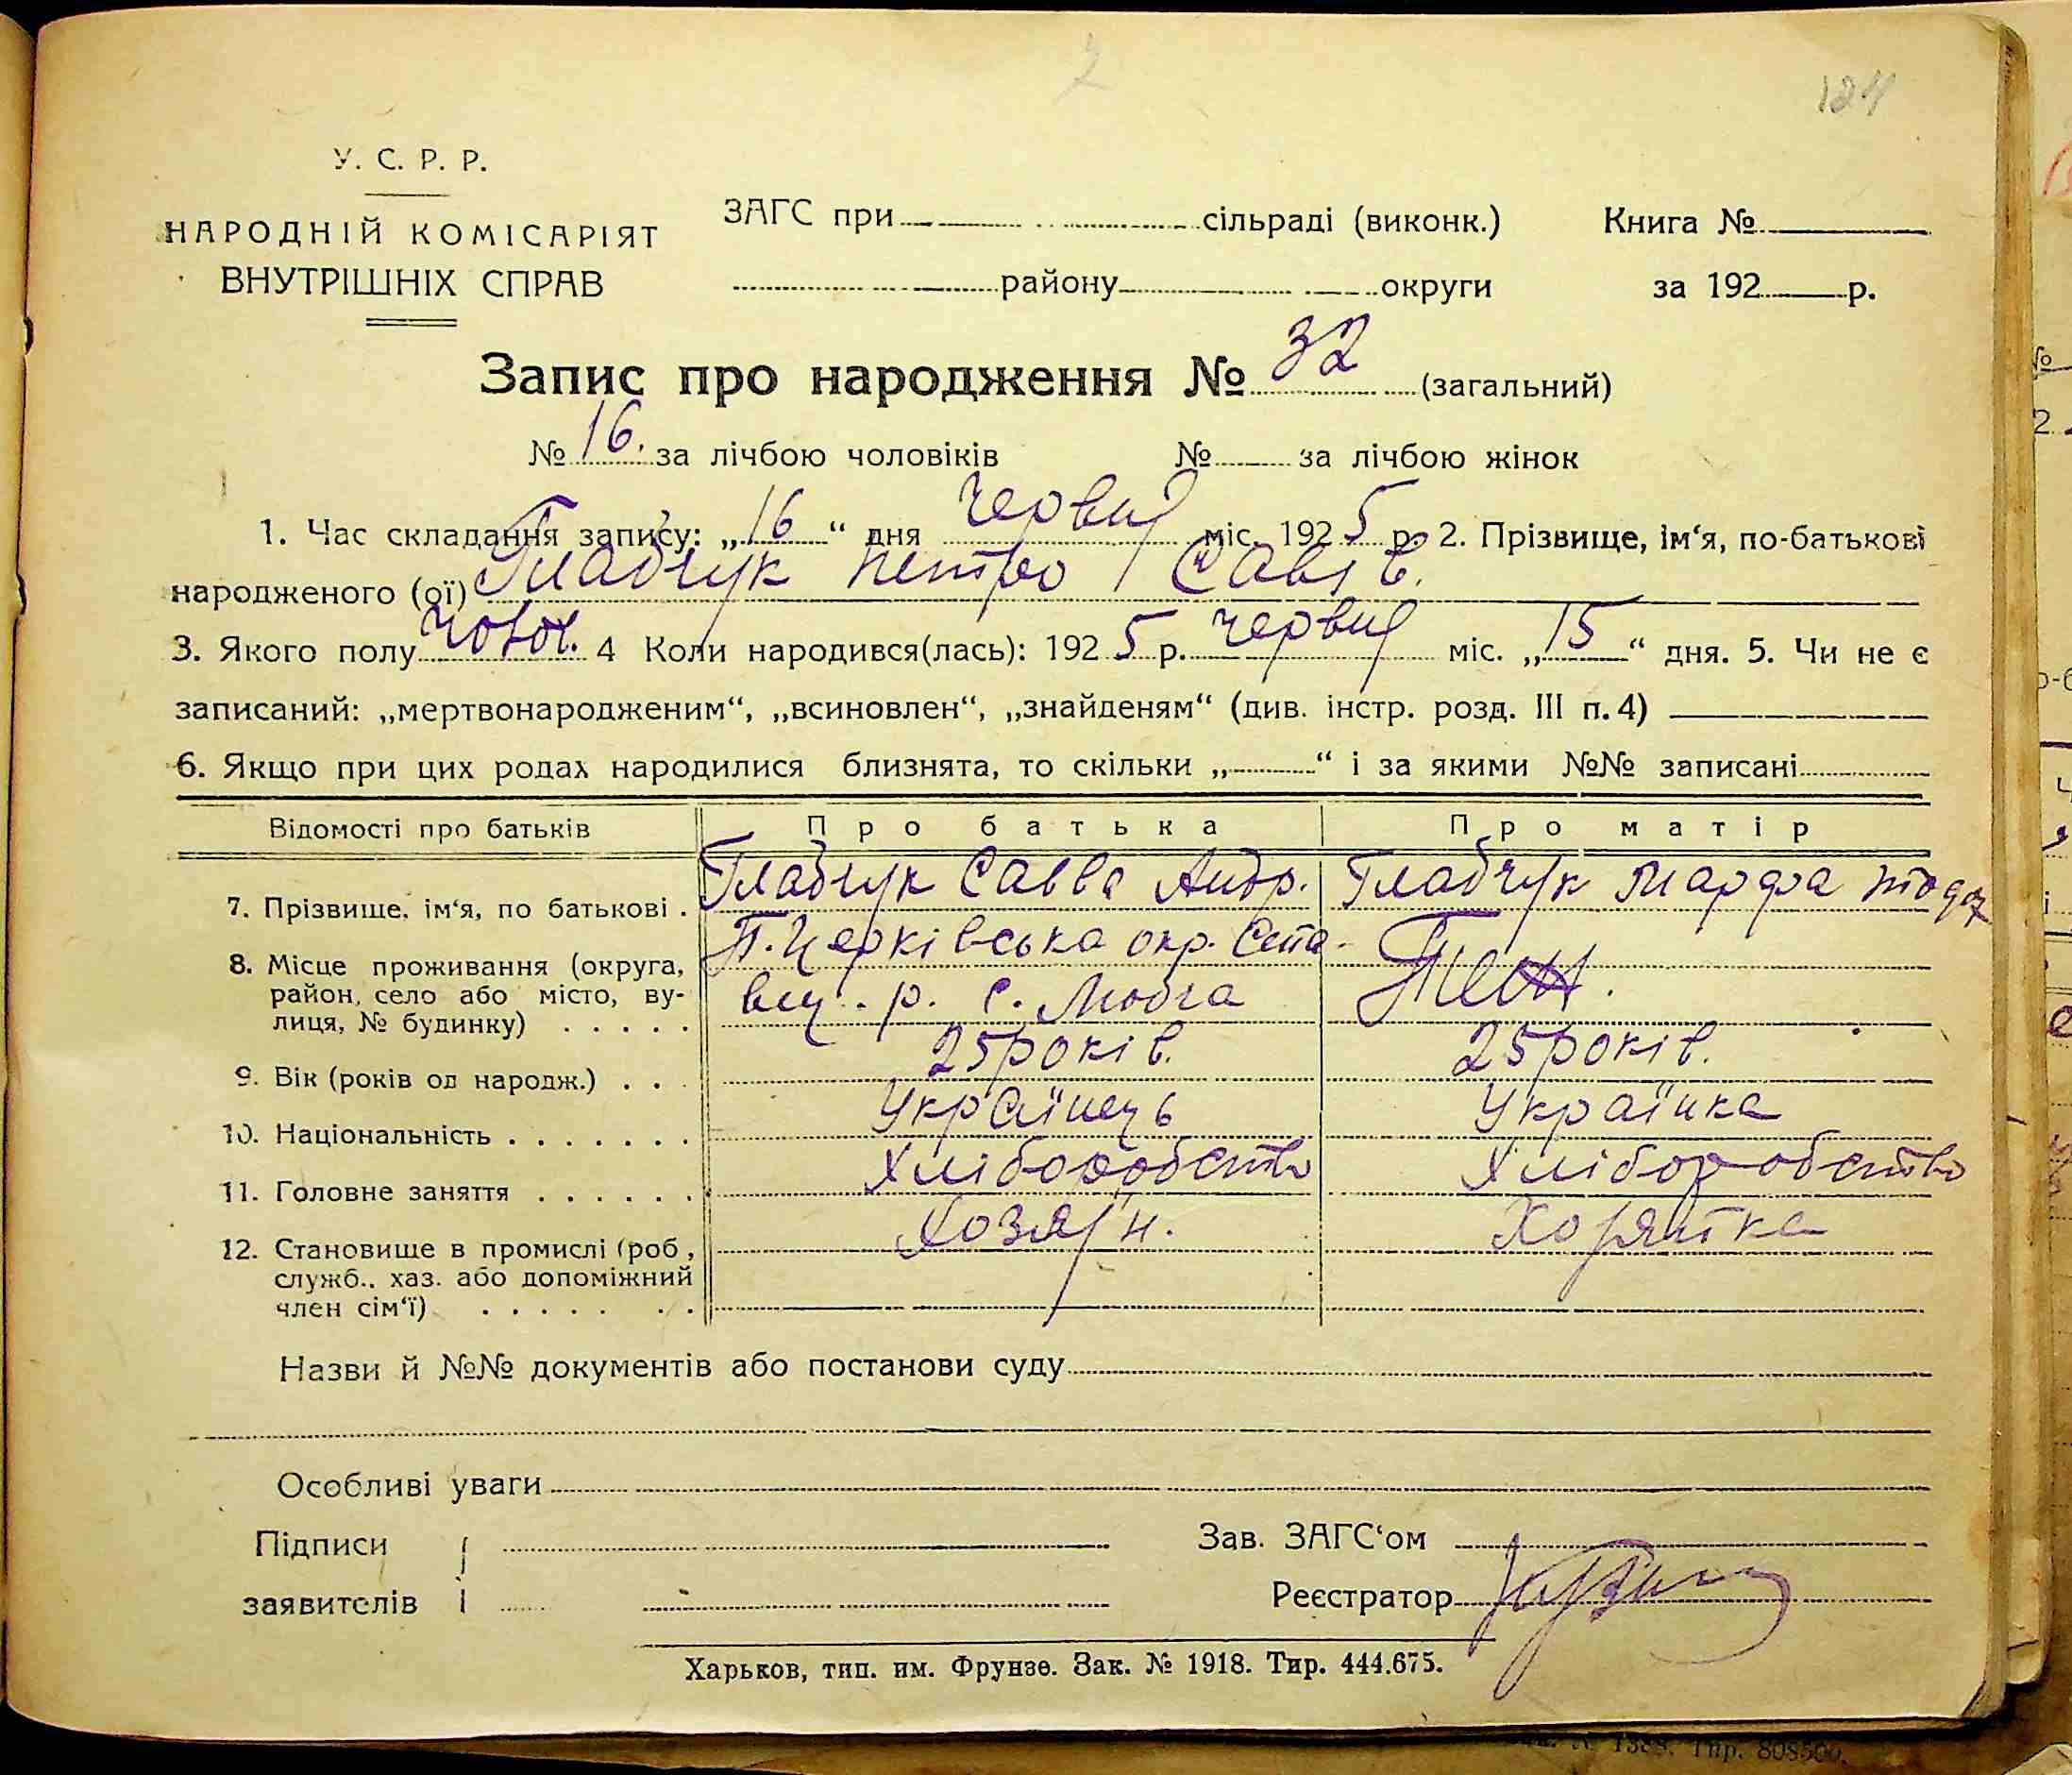 124
У. С. Р. Р.
НАРОДНІЙ КОМІСАРІЯТ
ВНУТРІШНІХ СПРАВ
ЗАГС при сільраді (виконк.)
району округи
Книга №
за 192 р.
Запис про народження № 32 (загальний)
№ 16. за лічбою чоловіків № за лічбою жінок
1. Час складання запису: „16“ дня червня міс. 1925 р. 2. Прізвище, ім‘я, по-батькові
народженого (ої) Глабчук Петро Савів.
3. Якого полу чолов. 4 Коли народився(лась): 1925 р. червня міс. „15“ дня. 5. Чи не є
записаний: „мертвонародженим“, „всиновлен“, „знайденям“ (див. інстр. розд. III п. 4)
6. Якщо при цих родах народилися близнята, то скільки „ “ і за якими №№ записані
Відомості про батьків Про батька Про матір
7. Прізвище, ім‘я, по батькові . Глабчук Савва Андр. Глабчук Марфа
8. Місце проживання (округа, район, село або місто, ву-лиця, № будинку) . . . . . Б. Церківська окр. Ста-
вищ. р. с. Любча
9. Вік (років од народж.) . . . 25 років. 25 років.
10. Національність . . . . . . . Українець Українка
11. Головне заняття . . . . . . . Хліборобство Хліборобство
12. Становище в промислі (роб., Хозяїн. Хозяйка
служб., хаз. або допоміжний
член сім‘ї) . . . . . . .
Назви й №№ документів або постанови суду
Особливі уваги
Підписи
заявителів
Зав. ЗАГС‘ом
Реєстратор
Харьков, тип. им. Фрунзе. Зак. № 1918. Тир. 444.675.
№ 1388. Тир. 808500.